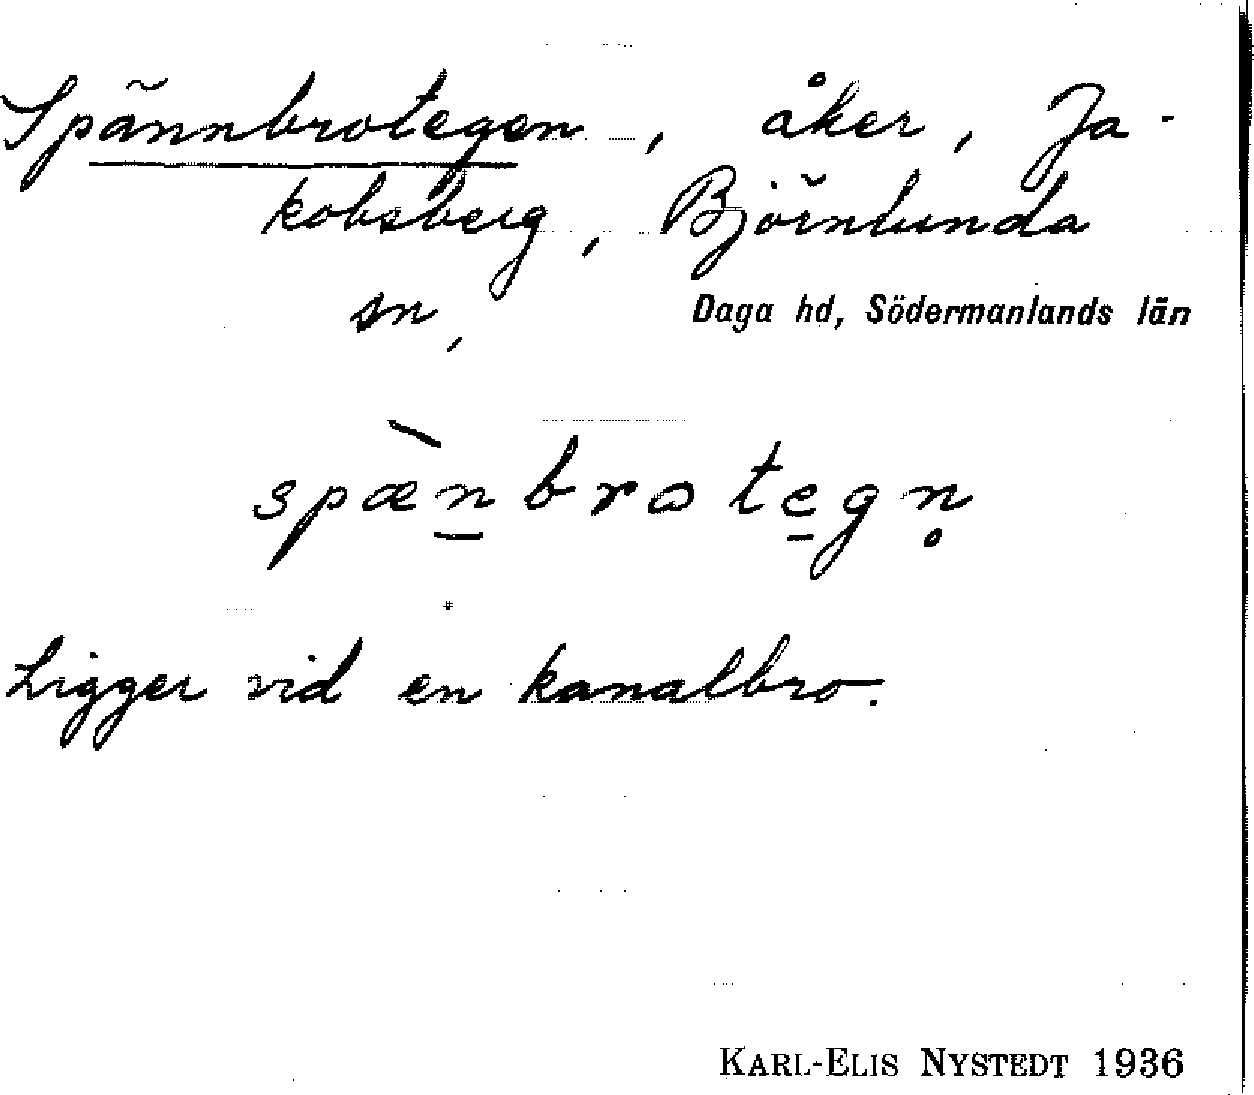 Spännbrotegen, åker, Ja-
kobsberg, Björnlunda
sn,
Daga hd, Södermanlands län
spæ̀n̲brote̲gn̥
Ligger vid en kanalbro.
KARL-ELIS NYSTEDT 1936